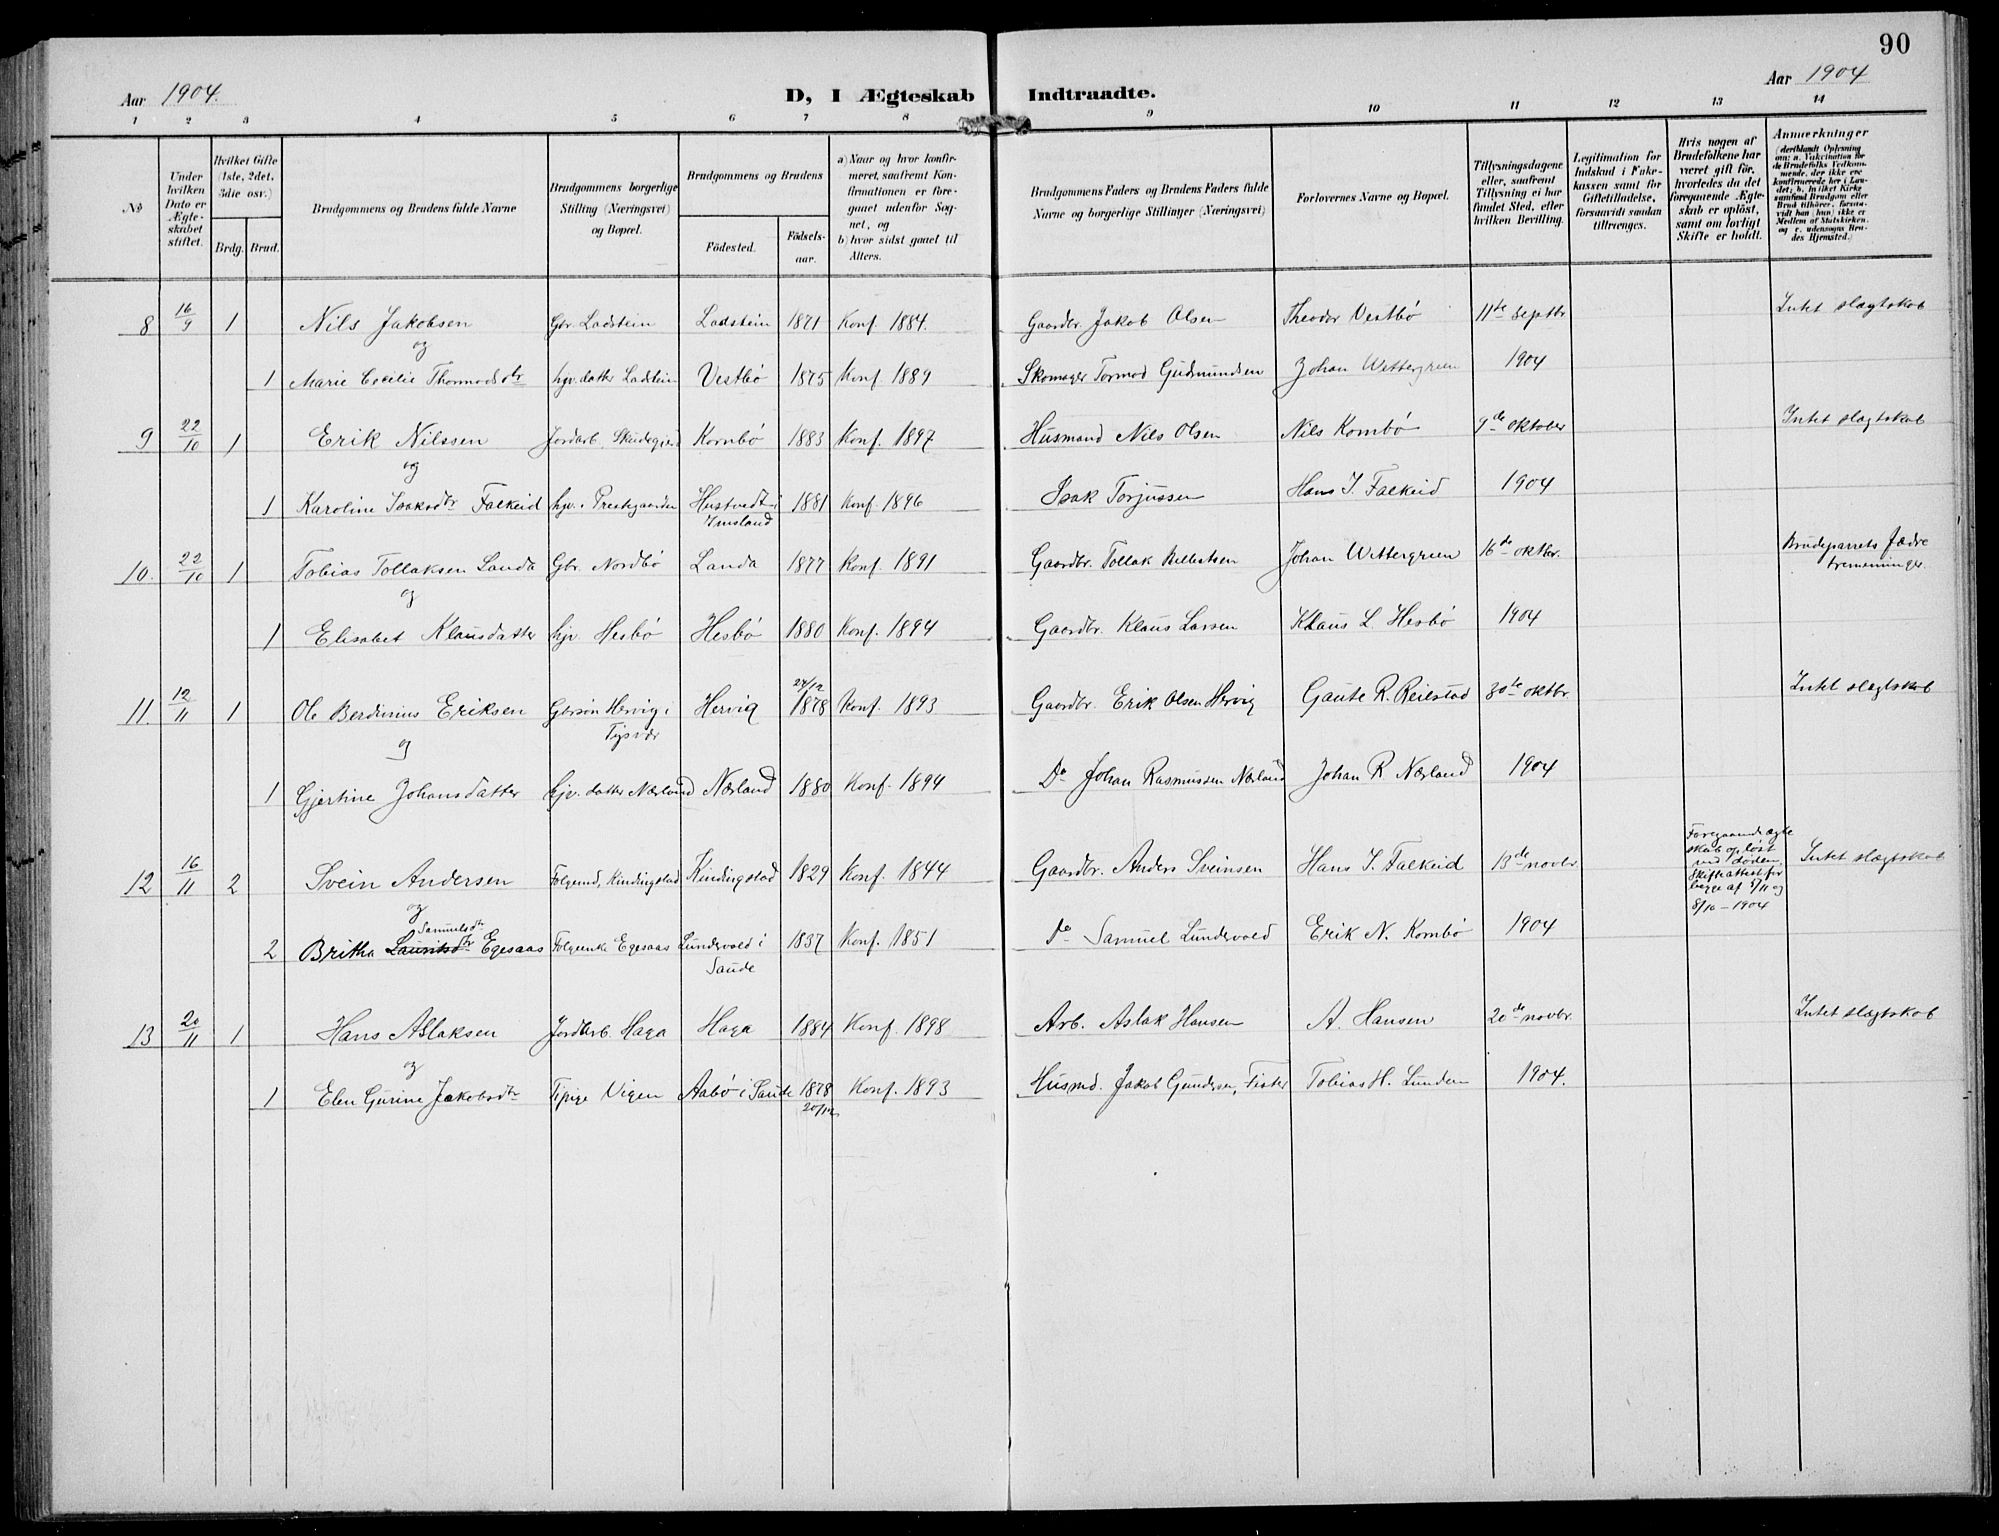 90
Aar 1904.
D, I Ægteskab Indtraadte.
Aar 1904
1 2 3 4 5 6 7 8 9 10 11 12 13 14
No
Under hvilken Dato er Ægteskabet stiftet.
Hvilket Gifte (1ste, 2det, 3die osv.)
Brdg. Brud.
Brudgommens og Brudens fulde Navne
Brudgommens borgerlige Stilling (Næringsvei) og Bopæl.
Brudgommens og Brudens
Fødested.
Fødselsaar.
a) Naar og hvor konfirmeret, saafremt Konfirmationen er foregaaet udenfor Sognet, og
b) hvor sidst gaaet til Alters.
Brudgommens Faders og Brudens Faders fulde Navne og borgerlige Stillinger (Næringsvei)
Forlovernes Navne og Bopæl.
Tillysningsdagene eller, saafremt Tillysning ei har fundet Sted, efter hvilken Bevilling.
Legitimation for Indskud i Enkekassen samt for Giftetilladelse, forsaavidt saadan tiltrænges.
Hvis nogen af Brudefolkene har været gift før, hvorledes da det foregaaende Ægteskab er opløst, samt om lovligt Skifte er holdt.
Anmærkninger (deriblandt Oplysning om: a. Vakcination for de Brudefolks Vedkommende, der ikke ere konfirmerede her i Landet; b. hvilket Kirkesamfund Brudgom eller Brud tilhører, forsaavidt han (hun) ikke er Medlem af Statskirken, og c. udensogns Brudes Hjemsted.)
8 16/9 1 Nils Jakobsen Gbr. Ladstein Ladstein 1871 Konf. 1884. Gaardbr. Jakob Olsen Theodor Vestbø 11te Septbr Intet slægtskab
og
1 Marie Cecilie Thormodsdtr hjv. datter Ladstein Vestbø 1875 Konf. 1889 Skomager Tormod Gudmundsen Johan Wettergreen 1904
9 22/10 1 Erik Nilssen Jordarb. Kornbø 1883 Konf. 1897 Husmand Nils Olsen Nils Kornbø 9de oktober Intet slægtskab
og
1 Karoline Isaksdtr Falkeid hjv. i Prestegaarden Hustvedt i Imsland 1881 Konf. 1896 Isak Torjussen Hans I. Falkeid 1904
10. 22/10 1 Tobias Tollaksen Landa Gbr. Nordbø Landa 1877 Konf. 1891 Gaardbr. Tollak Johan Wettergreen 16de oktbr. Brudeparrets Fædre tremeninger
og
1 Elisabet Klausdatter hjv. Hesbø Hesbø 1880 Konf. 1894 Gaardbr. Klaus Larsen Klaus L. Hesbø 1904
11 12/11 1 Ole Berdinius Eriksen Gbrsøn Hervig i Tysvær Hervig 24/12 1878 Konf. 1893 Gaardbr. Erik Olsen Hervig Gaute R. Reilstad 30te oktbr Intet slægtskab
og
1 Gjertine Johansdatter hjv. datter Nærland Nærland 1880 Konf. 1894 Do Johan Rasmussen Nærland Johan R Nærland 1904
12 16/11 2 Svein Andersen Folgemd, Kindingstad Kindingstad 1829 Konf. 1844 Gaardbr. Anders Sveinsen Hans I. Falkeid 13de novbr. Foregaaende ægteskab opløst ved døden. Skifteattest for begge af 5/11 og 8/10 - 1904 Intet slægtskab
og
2 Britha Lauritsdtr Samuelsdtr Egesaas Folgeenke Egesaas Lundevold i Saude 1837 Konf. 1851 Do Samuel Lundevold Erik N. Kornbø 1904
13 20/11 1 Hans Aslaksen Jordarb. Haga Haga 1884 Konf. 1898 Arb. Aslak Hansen A. Hansen 20de novbr. Intet slægtskab
og
1 Elen Gurine Jakobsdtr Tjpige Vigen Aabø i Saude 1878 20/12 Konf. 1893 Husmd. Jakob Gundersen, Fister Tobias H. Lunden 1904.